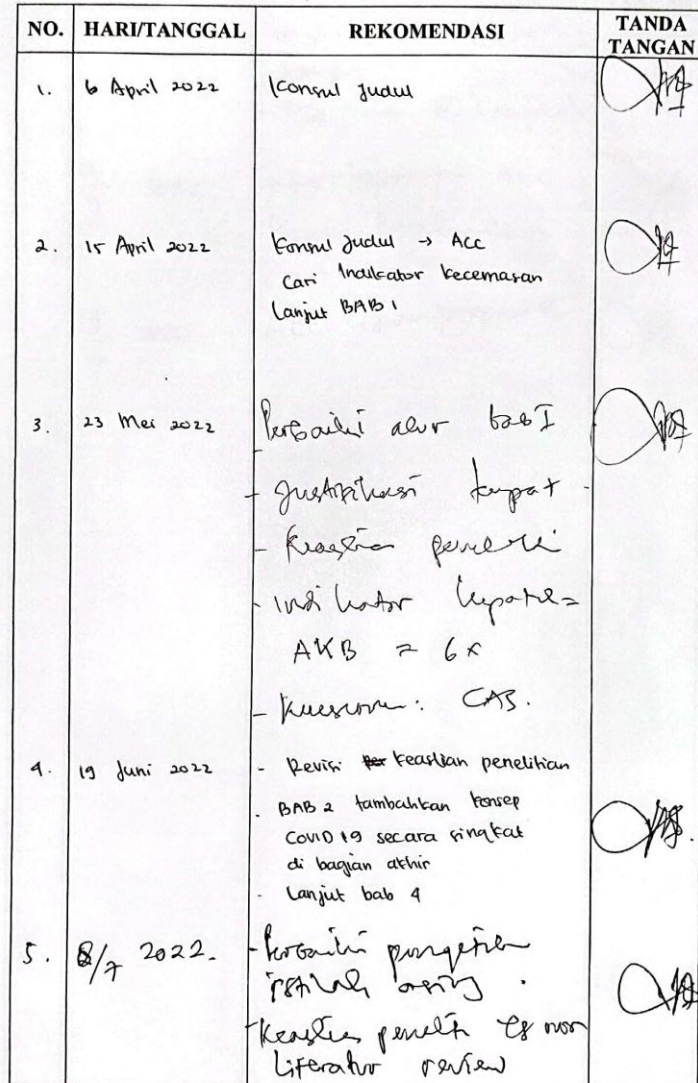 NO. HARI/TANGGAL REKOMENDASI TANDA TANGAN
1. 6 April 2022 Konsul Judul
2. 15 April 2022 Konsul Judul → ACC
Cari Indikator kecemasan
Lanjut BAB 1
3. 23 Mei 2022 Perbaiki alur bab I
- Justifikasi tempat
- Keaslian
- Indikator
AKB = 6x
- Kuesioner: CAS.
4. 19 Juni 2022 - Revisi keaslian penelitian
- BAB 2 tambahkan konsep
COVID 19 secara singkat
di bagian akhir
- Lanjut bab 4
5. 8/7 2022. - Perbaiki pengetikan
istilah asing.
- Keaslian non
Literatur review